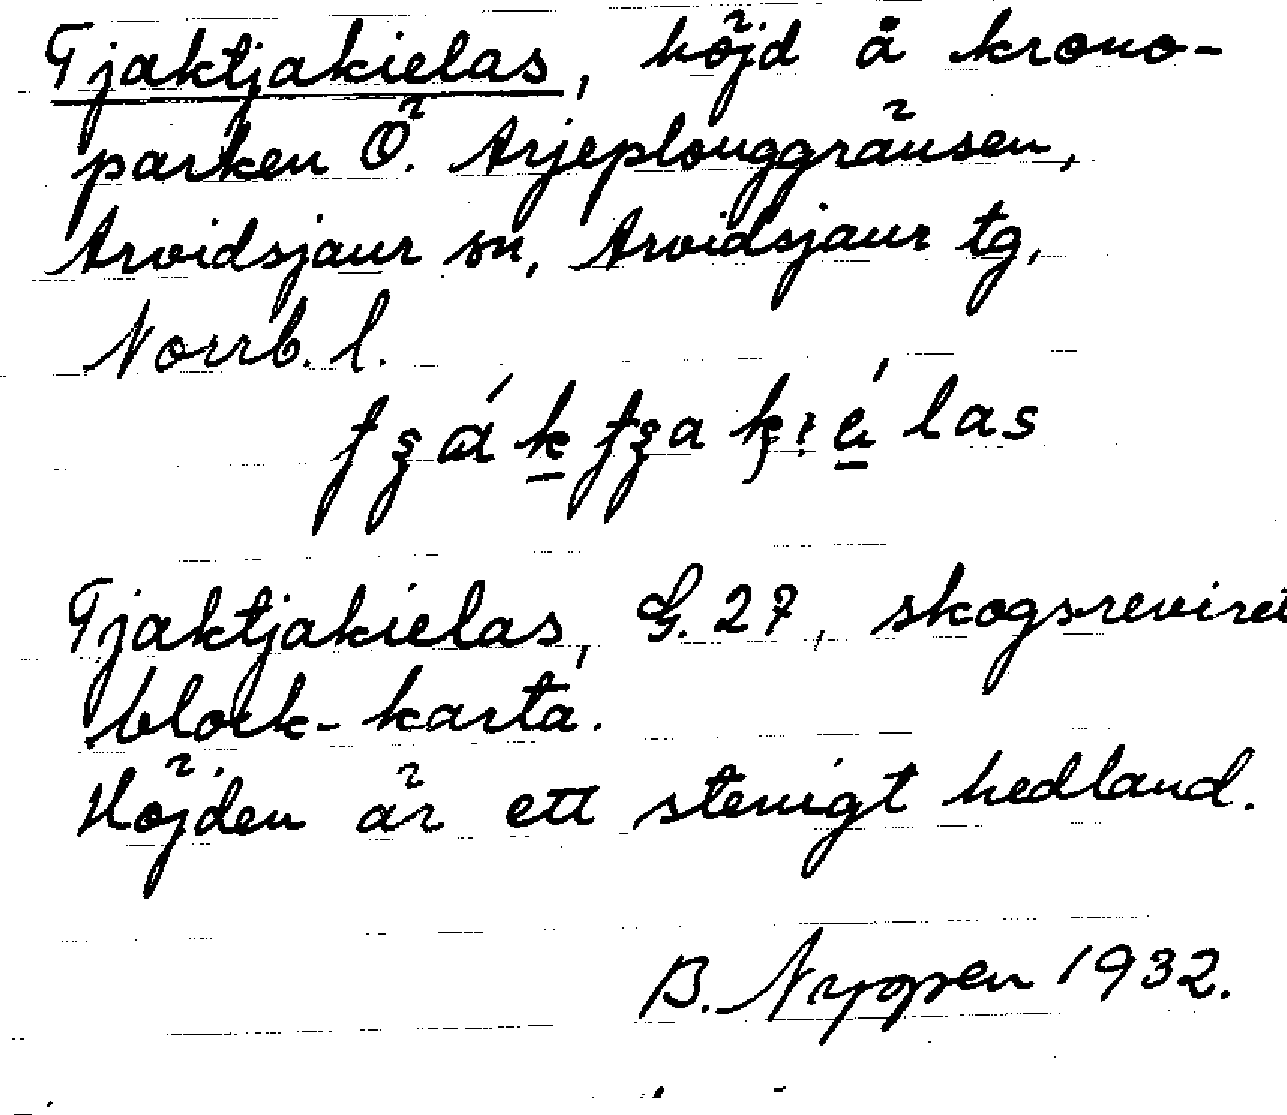 Tjaktjakielas, höjd å krono-
parken Ö. Arjeplouggränsen,
Arvidsjaur sn, Arvidsjaur tg,
Norrb. l.
Tjaktjakielas, G. 27, skogsreviret
block-karta.
Höjden är ett stenigt hedland.
B. Nygren 1932.